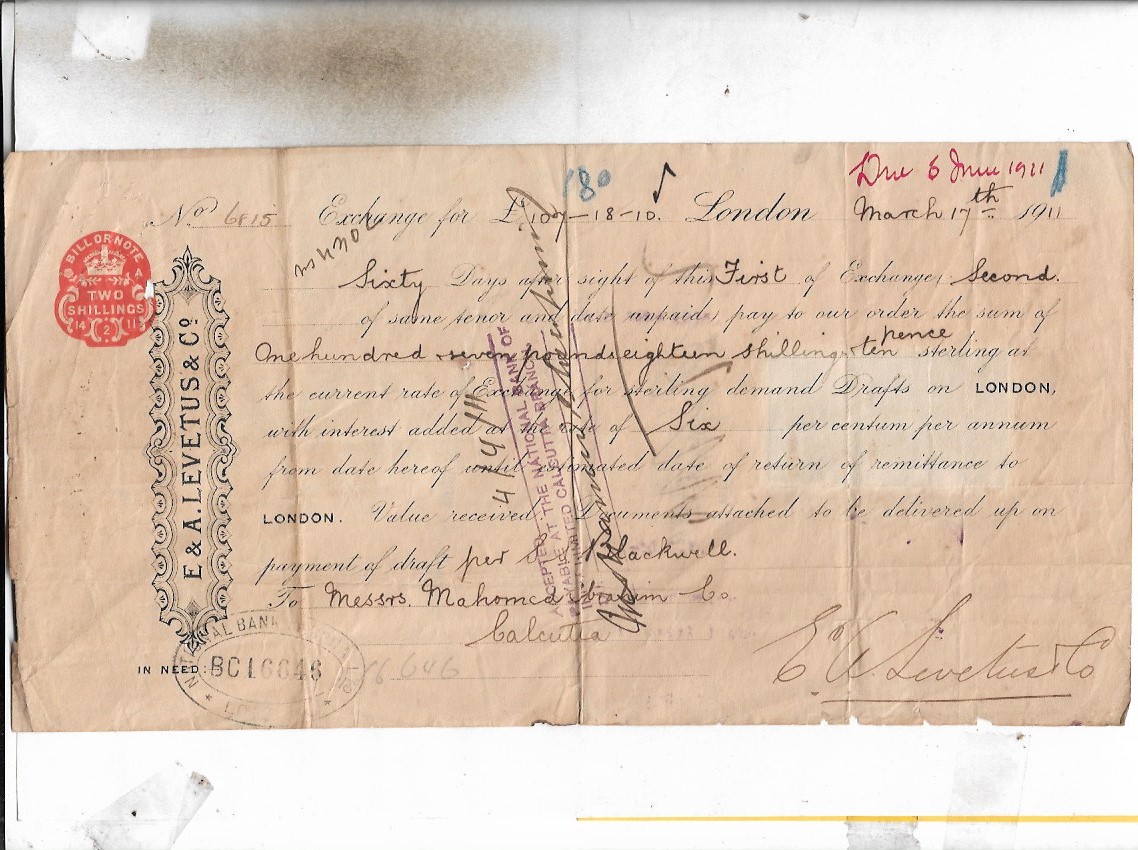 Due 6 June 1911
180
No. 6815 Exchange for £107-18-10. London March 17th 1911
BILL OR NOTE
TWO
SHILLINGS
14 2 11
E & A. LEVETUS & Co.
Sixty Days after sight of this First of Exchange, Second.
of same tenor and date unpaid, pay to our order the sum of
One hundred & seven pounds eighteen shillings & ten pence sterling at
the current rate of Exchange for sterling demand Drafts on LONDON,
with interest added at the rate of Six per centum per annum
from date hereof until estimated date of return of remittance to
LONDON. Value received. Documents attached to be delivered up on
payment of draft per Blackwell.
To Messrs. Mahomed Ibrahim & Co
Calcutta
ACCEPTED
PAYABLE AT THE NATIONAL BANK OF
LIMITED CALCUTTA BRANCH
IN NEED:
NATIONAL BANK
BC16646
16646
E & A. Levetus & Co